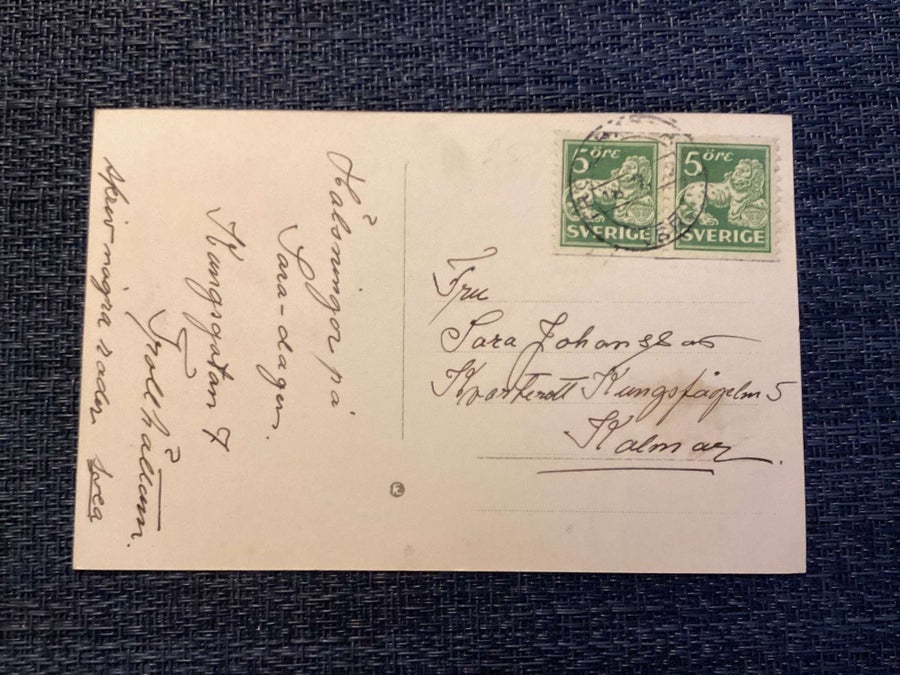 5 öre
SVERIGE
5 öre
SVERIGE
Hälsningor på
Sara-dagen.
Kungsgatan 7
Trollhättan.
skriv några rader Svea
Fru
Sara Johansson
Kvarteret Kungsfågeln 5
Kalmar.